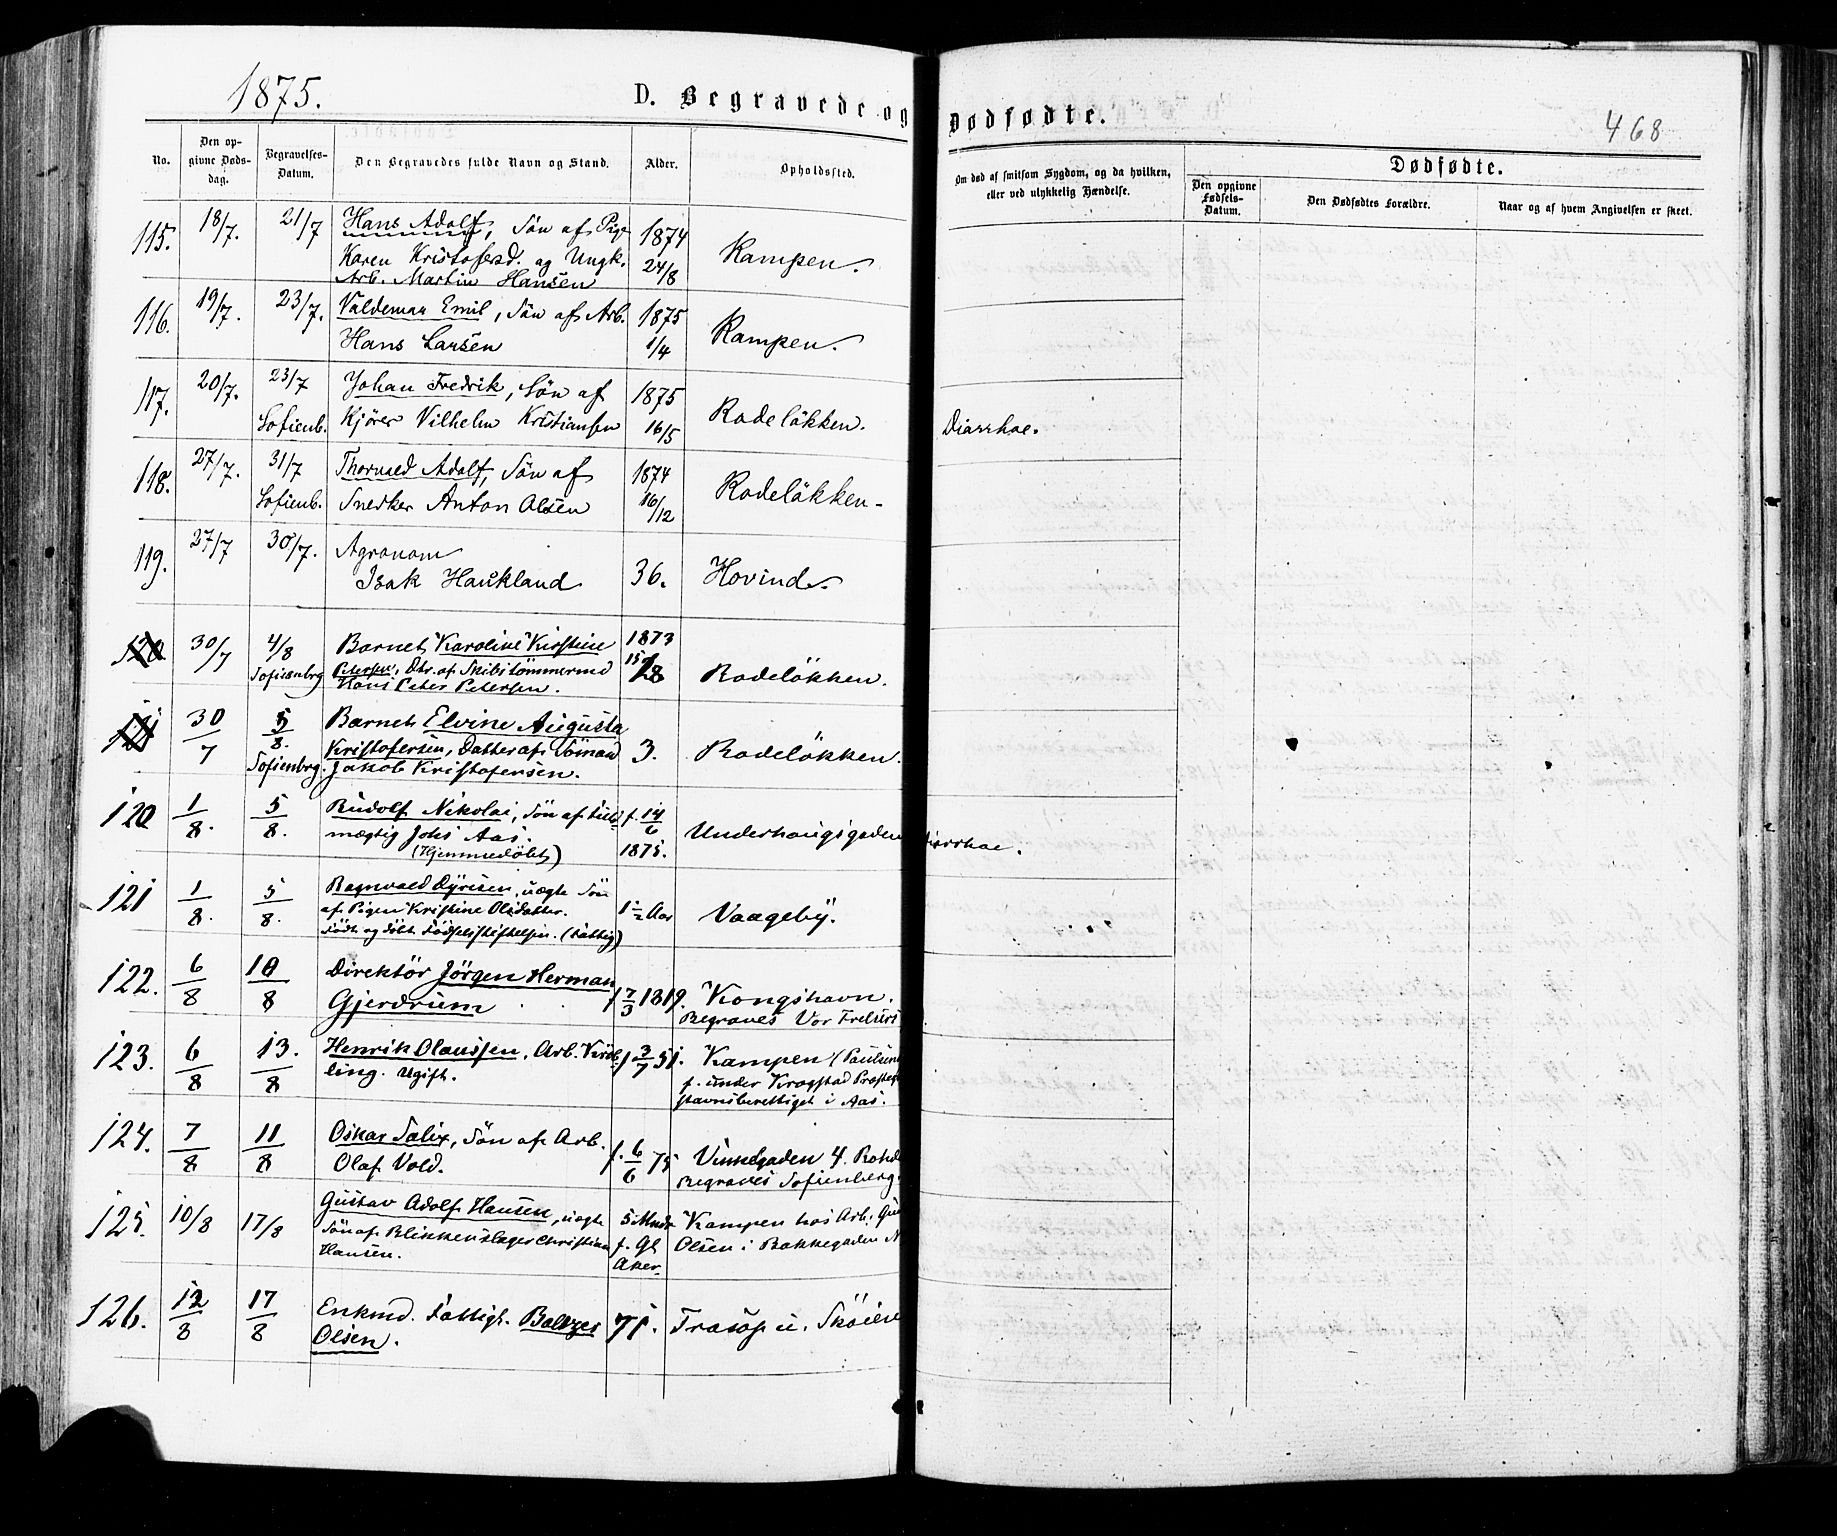 1875.
D. Begravede og Dødfødte.
468
No.
Den op-
givne Døds-
dag.
Begravelses-
Datum.
Den Begravedes fulde Navn og Stand.
Alder.
Opholdssted.
Om død af smitsom Sygdom, og da hvilken,
eller ved ulykkelig Hændelse.
Dødfødte.
Den opgivne
Fødsels-
Datum.
Den Dødfødtes Forældre.
Naar og af hvem Angivelsen er skeet.
115. 18/7. 21/7 Hans Adolf, Sön af Pige 1874
Karen Kristofersd. og Ungk. 24/8 Kampen.
Arb. Martin Hansen
116. 19/7. 23/7. Valdemar Emil, Sön af Arb. 1875
Hans Larsen 1/4 Kampen.
117. 20/7. 23/7 Johan Fredrik, Sön af 1875
Sofienb. Kjörer Vilhelm Kristiansen 16/5 Rodelökken. Diarrhoe.
118. 27/7. 31/7 Thorvald Adolf, Sön af 1874
Sofienb. Snedker Anton Olsen 16/12 Rodelökken-
119. 27/7 30/7. Agronom
Isak Haukland 36. Hovind.
120 30/7 4/8 Barnet Karoline Kirstine 1873
Sofienbrg Petersen, Dtr. af Skibstömmermd Rodelökken.
Hans Peter Petersen.
121 30/7 5/8. Barnet Elvine Augusta
Kristofersen, Datter af Sömand 3. Rodelökken.
Sofienbrg. Jakob Kristofersen.
120 1/8. 5/8. Rudolf Nikolai, Sön af Fuld- f. 14/6
mægtig Johs Aas. 1875. Underhaugsgaden Diarrhoe.
(Hjemmedöbt)
121 1/8. 5/8. Ragnvald Dyresen, uægte Sön
af Pigen Kristine Olsdatter. 1 1/2 Aar Vaageby.
Födt og döbt Födselsstiftelsen. (Fattig)
122. 6/8 10/8 Direktör Jörgen Herman
Gjerdrum f 7/3 1819. Kongshavn.
Begraves Vor Frelsers
123. 6/8 13./8 Henrik Olaussen, Arb. f 3/7 51. Kampen (Paulsen
ling. Ugift. f. under Kragstad Præsteg
stavnsberettiget i Aas.
124. 7/8 11/8 Oskar Salix, Sön af Arb.
Olaf Vold. f. 6/6 75 Vinkelgaden 4. Rode
Begraves Sofienberg.
125. 10/8 17/8 Gustav Adolf Hansen, uægte 5 Mndr Kampen hos Arb. Gu
Sön af Blikkenslager Christian f. Gl. Olsen i Bakkegaden N
Hansen. Aker
126. 12/8 17/8 Enkmd. Fattigl. Baltzer 71. Frasöp u. Sköien
Olsen.